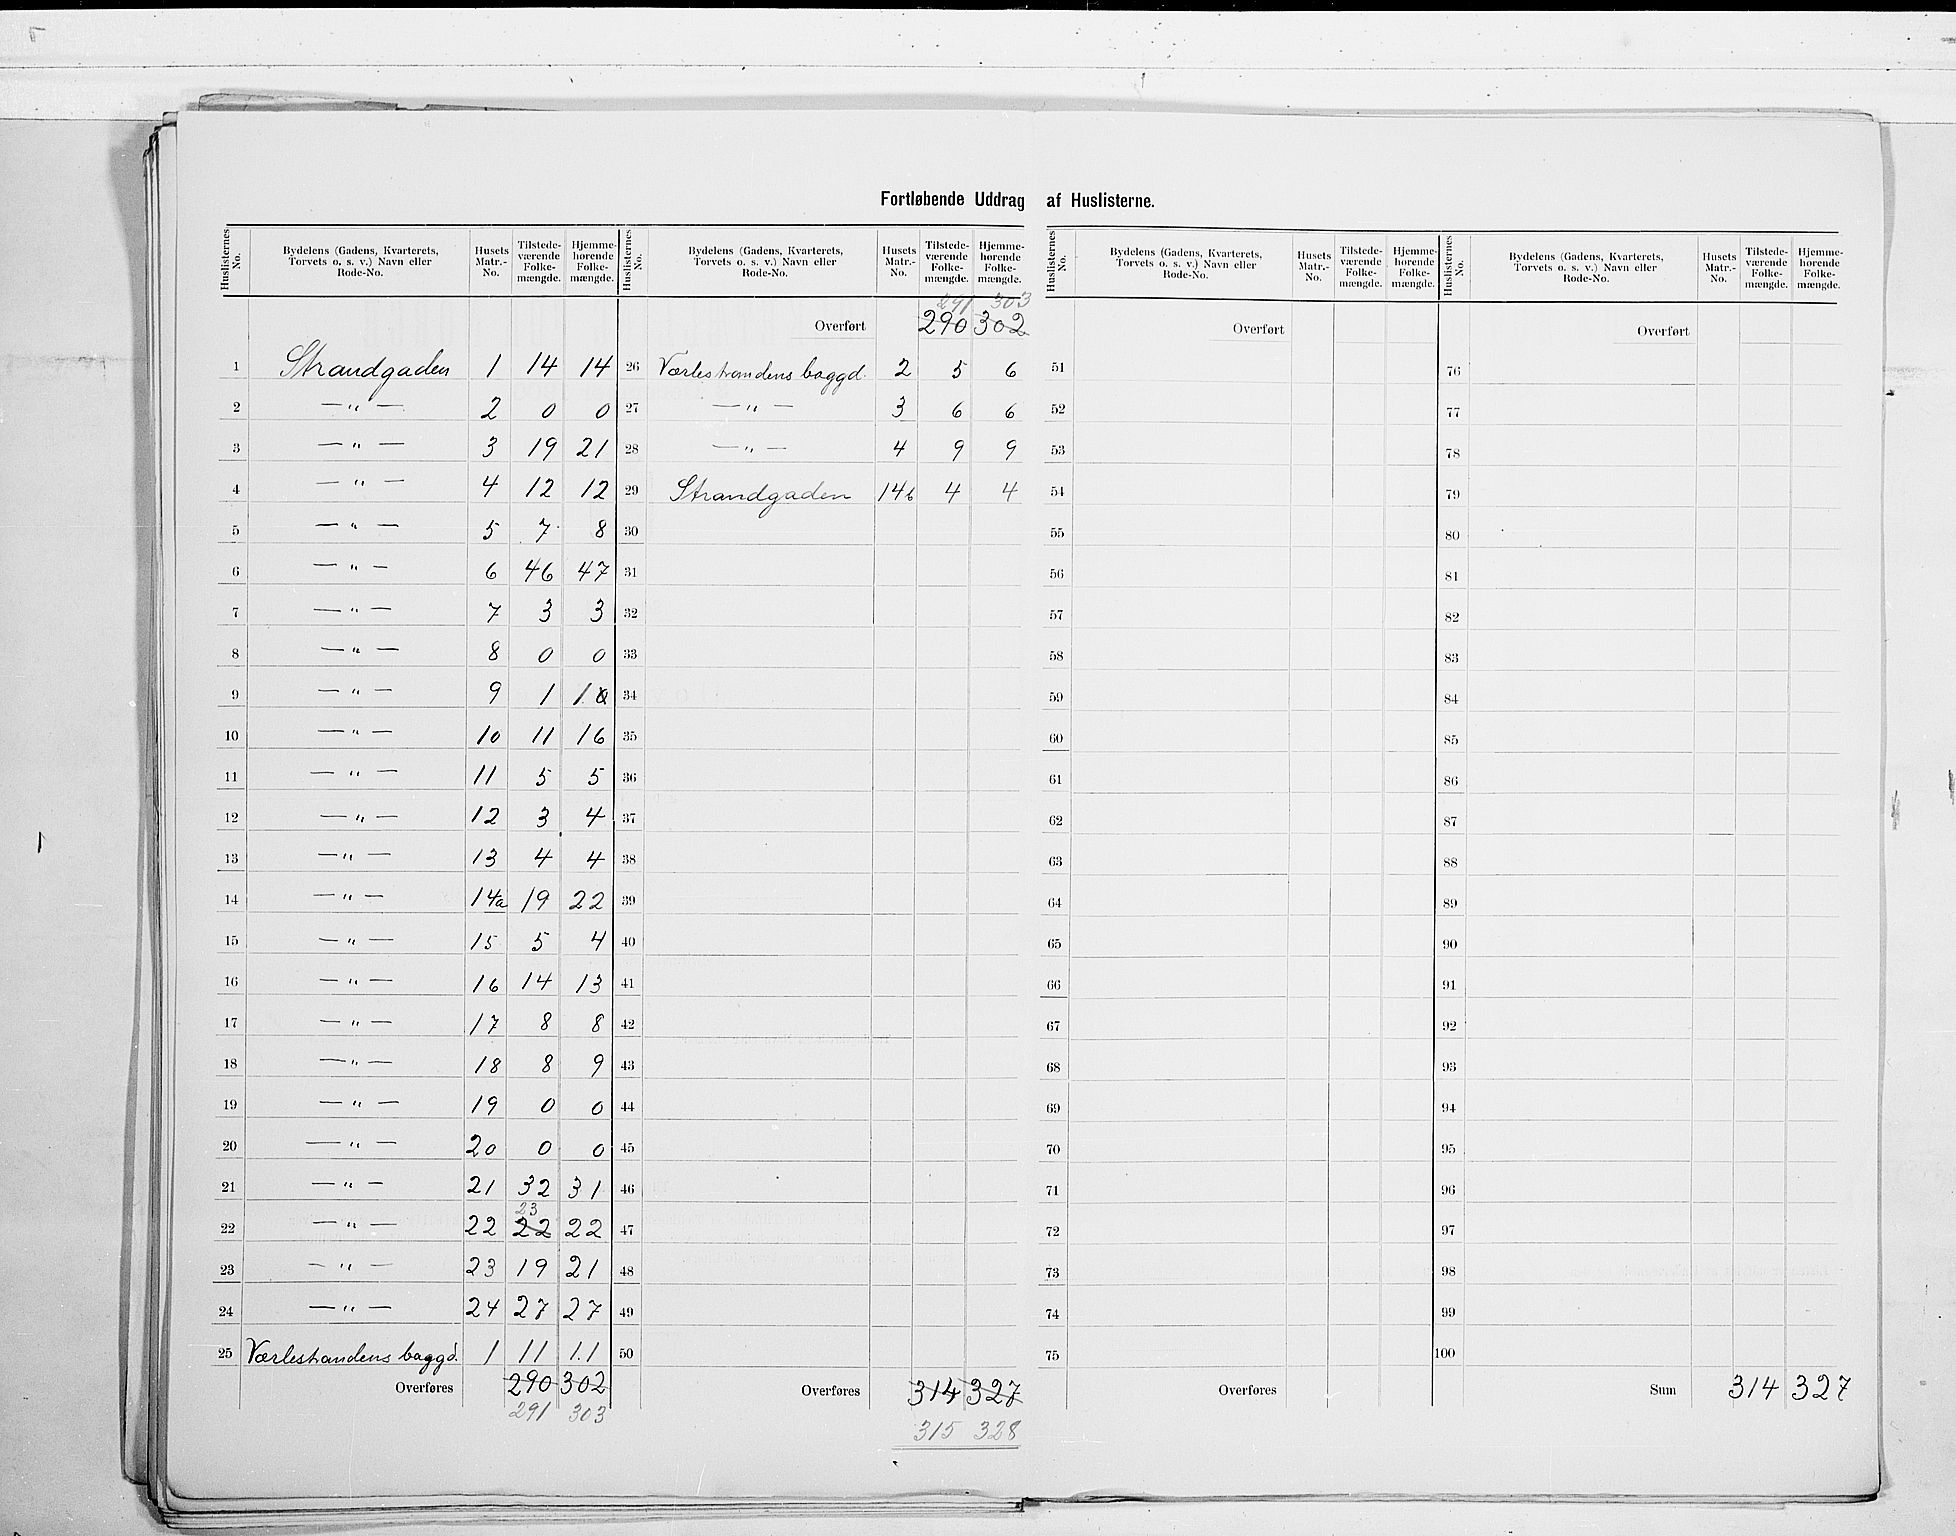 Fortløbende Uddrag af Huslisterne.
Huslisternes No. | Bydelens (Gadens, Kvarterets, Torvets o. s. v.) Navn eller Rode-No. | Husets Matr.-No. | Tilstede-værende Folke-mængde. | Hjemme-hørende Folke-mængde. | Huslisternes No. | Bydelens (Gadens, Kvarterets, Torvets o. s. v.) Navn eller Rode-No. | Husets Matr.-No. | Tilstede-værende Folke-mængde. | Hjemme-hørende Folke-mængde. | Huslisternes No. | Bydelens (Gadens, Kvarterets, Torvets o. s. v.) Navn eller Rode-No. | Husets Matr.-No. | Tilstede-værende Folke-mængde. | Hjemme-hørende Folke-mængde. | Huslisternes No. | Bydelens (Gadens, Kvarterets, Torvets o. s. v.) Navn eller Rode-No. | Husets Matr.-No. | Tilstede-værende Folke-mængde. | Hjemme-hørende Folke-mængde.
291 303
Overført 290 302 Overført Overført
1 Strandgaden 1 14 14 26 Værlestrandens baggd. 2 5 6 51 76
2 — " — 2 0 0 27 — " — 3 6 6 52 77
3 — " — 3 19 21 28 — " — 4 9 9 53 78
4 — " — 4 12 12 29 Strandgaden 14b 4 4 54 79
5 — " — 5 7 8 30 55 80
6 — " — 6 46 47 31 56 81
7 — " — 7 3 3 32 57 82
8 — " — 8 0 0 33 58 83
9 — " — 9 1 1 34 59 84
10 — " — 10 11 16 35 60 85
11 — " — 11 5 5 36 61 86
12 — " — 12 3 4 37 62 87
13 — " — 13 4 4 38 63 88
14 — " — 14a 19 22 39 64 89
15 — " — 15 5 4 40 65 90
16 — " — 16 14 13 41 66 91
17 — " — 17 8 8 42 67 92
18 — " — 18 8 9 43 68 93
19 — " — 19 0 0 44 69 94
20 — " — 20 0 0 45 70 95
21 — " — 21 32 31 46 71 96
23
22 — " — 22 22 22 47 72 97
23 — " — 23 19 21 48 73 98
24 — " — 24 27 27 49 74 99
25 Værlestrandens baggd. 1 11 11 50 75 100
Overføres 290 302 Overføres 314 327 Overføres Sum 314 327
291 303
315 328